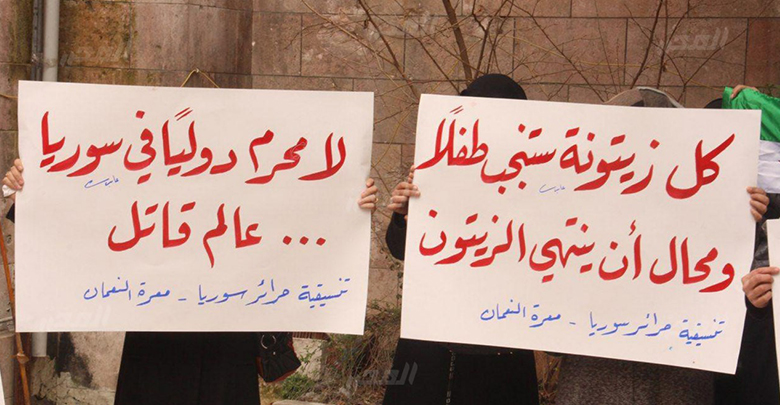 كل زيتونة ستنجب طفلًا
ومحال أن ينتهي الزيتون
تنسيقية حرائر سوريا - معرة النعمان
لا محرم دوليًا في سوريا
... عالم قاتل
تنسيقية حرائر سوريا - معرة النعمان